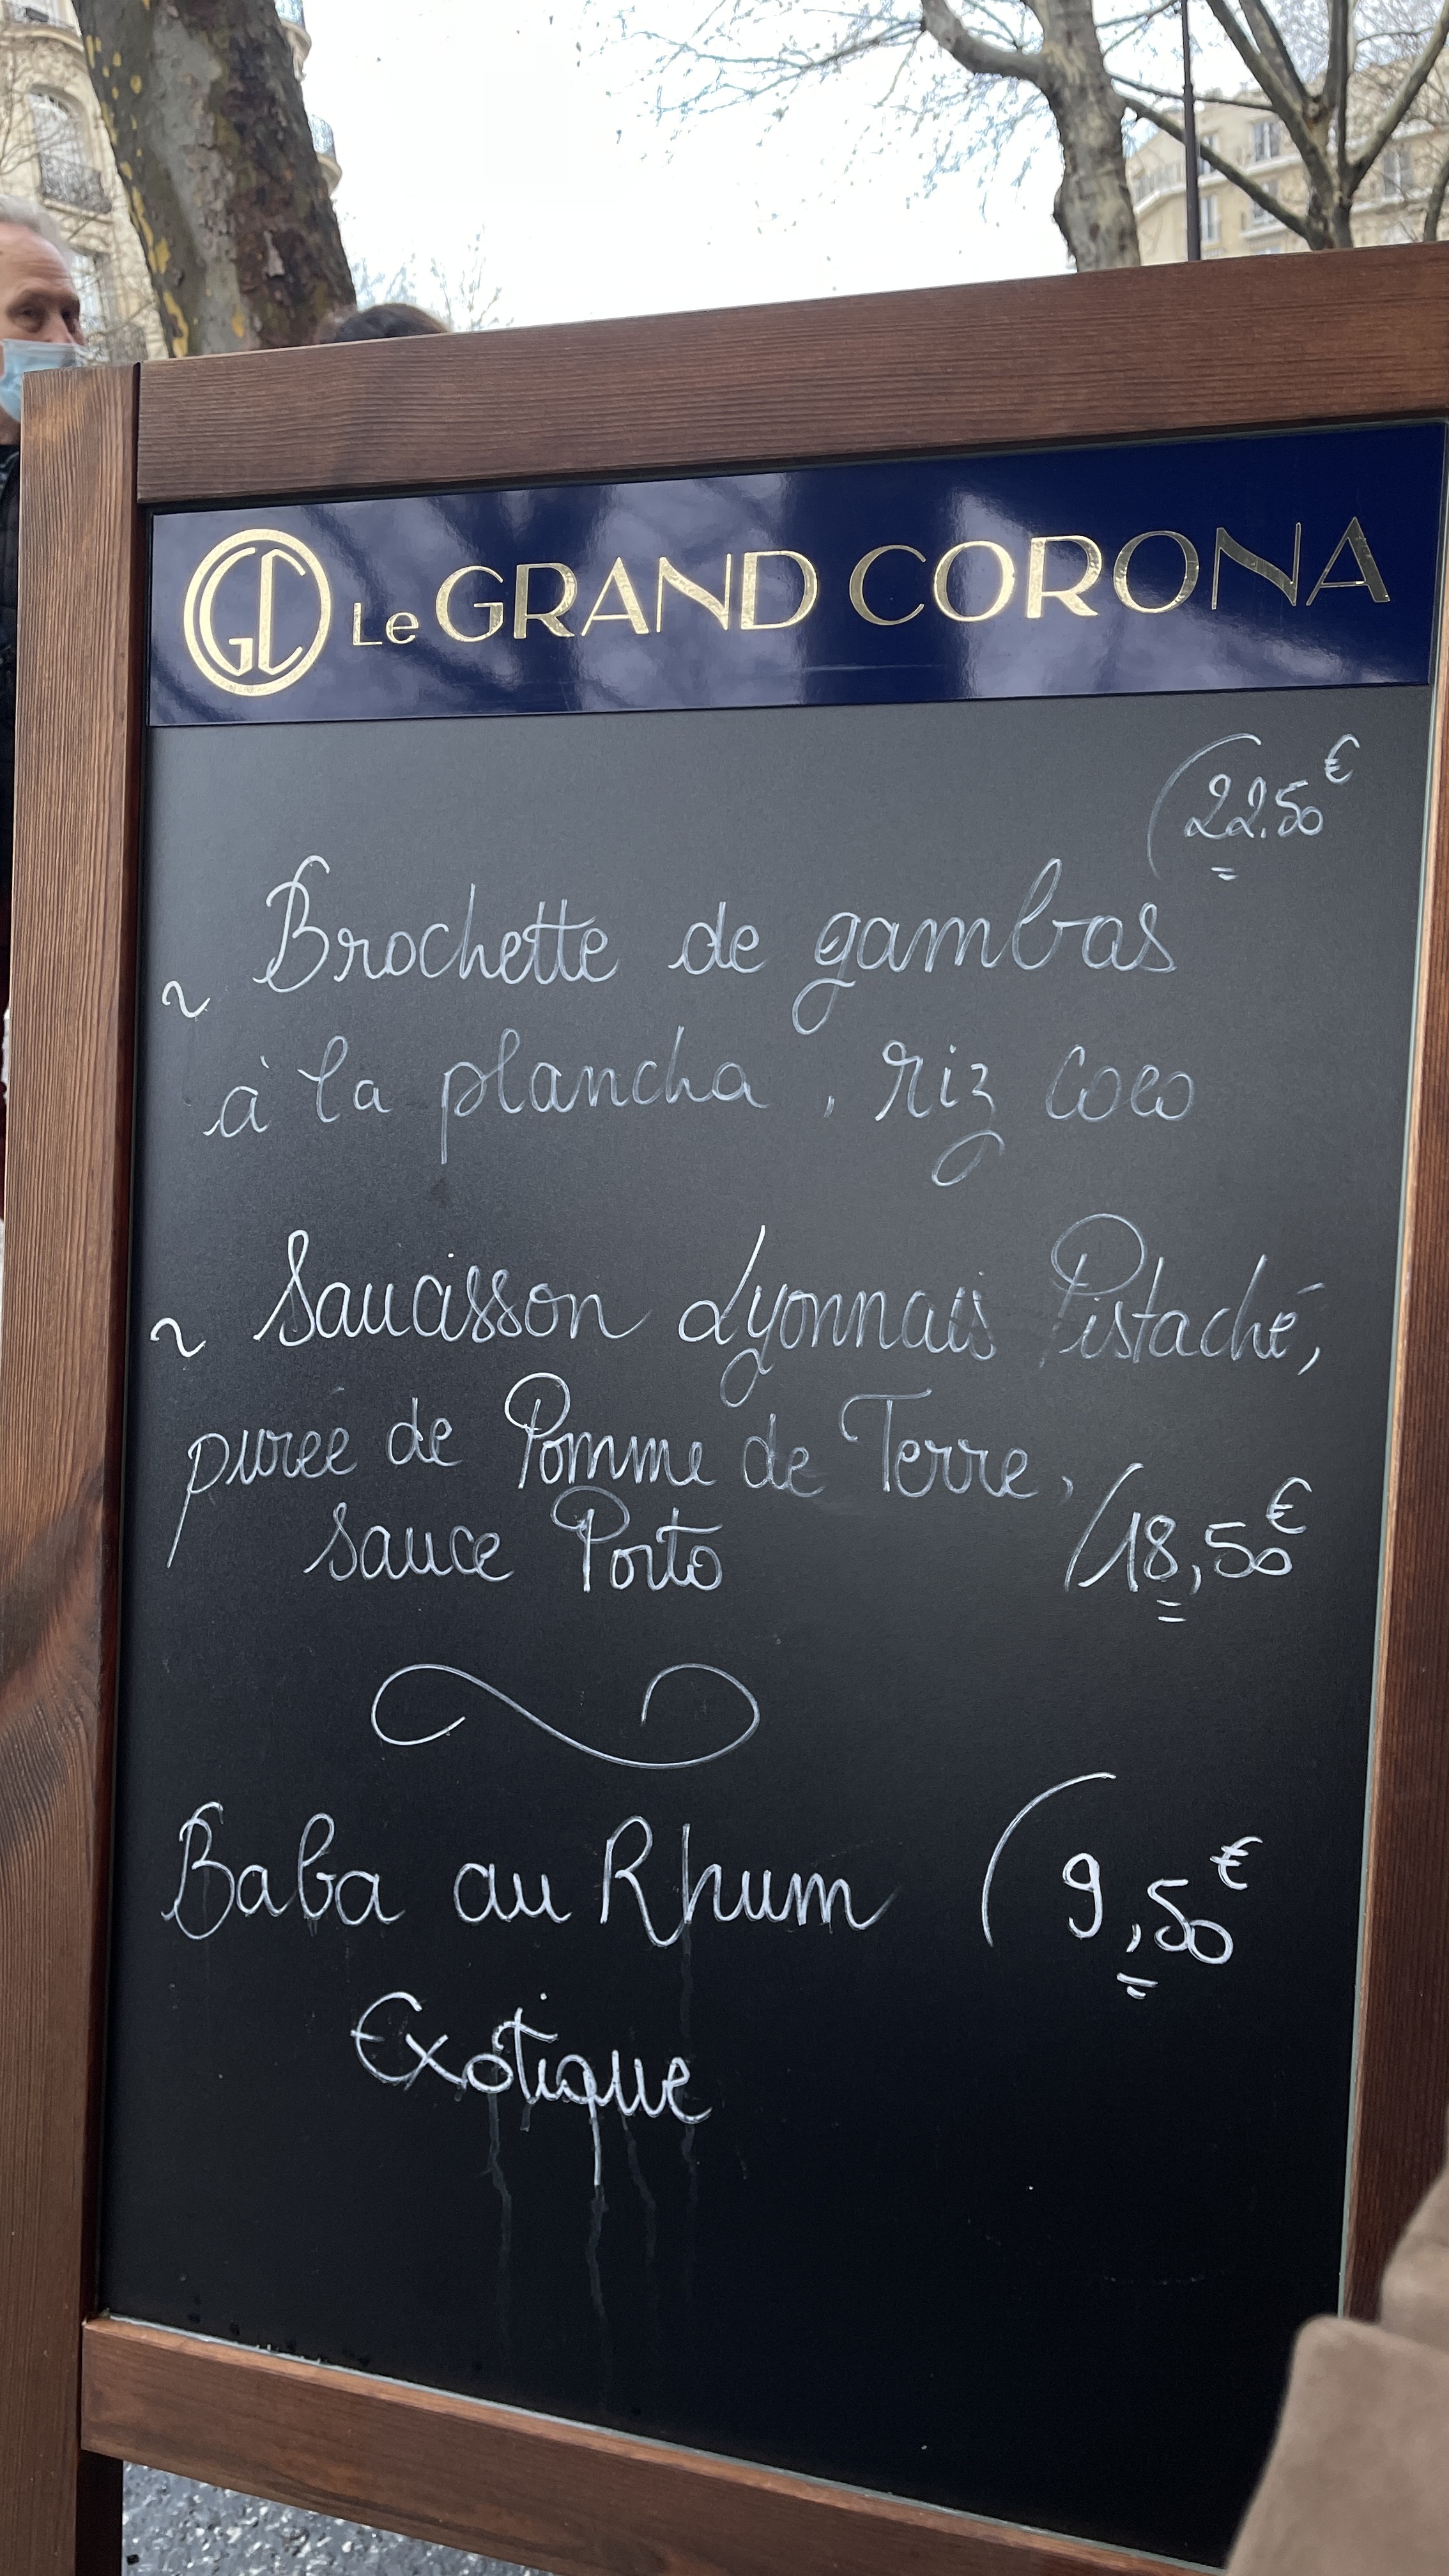 GC Le GRAND CORONA
22.50€
~ Brochette de gambas
à la plancha, riz coco
~ Saucisson Lyonnais Pistaché,
purée de Pomme de Terre,
sauce Porto 18,50€
Baba au Rhum 9,50€
Exotique